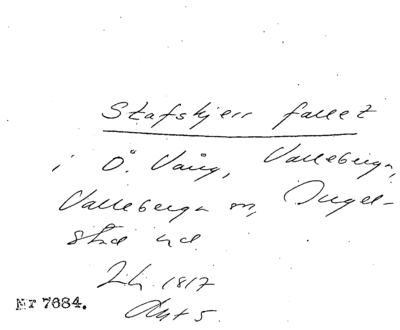 Stafskjerr fallet
i Ö. Vång, Valleberga,
Valleberga sn, Ingel-
stad hd.
1817
Akt 5.
Nr 7684.